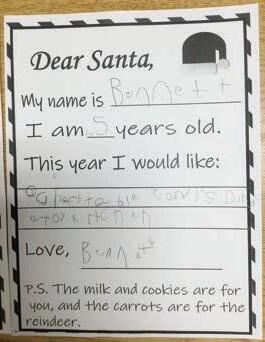 Dear Santa,
My name is Bennett
I am 5 years old.
This year I would like:
Love, Bennett
P.S. The milk and cookies are for
you, and the carrots are for the
reindeer.